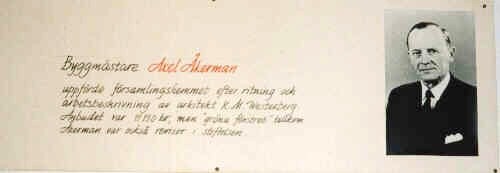 Byggmästare Axel Åkerman
uppförde församlingshemmet efter ritning och
arbetsbeskrivning av arkitekt K.M. Westerberg
Anbudet var kr, men "gröna fönstren" tillkom
Åkerman var också revisor i stiftelsen